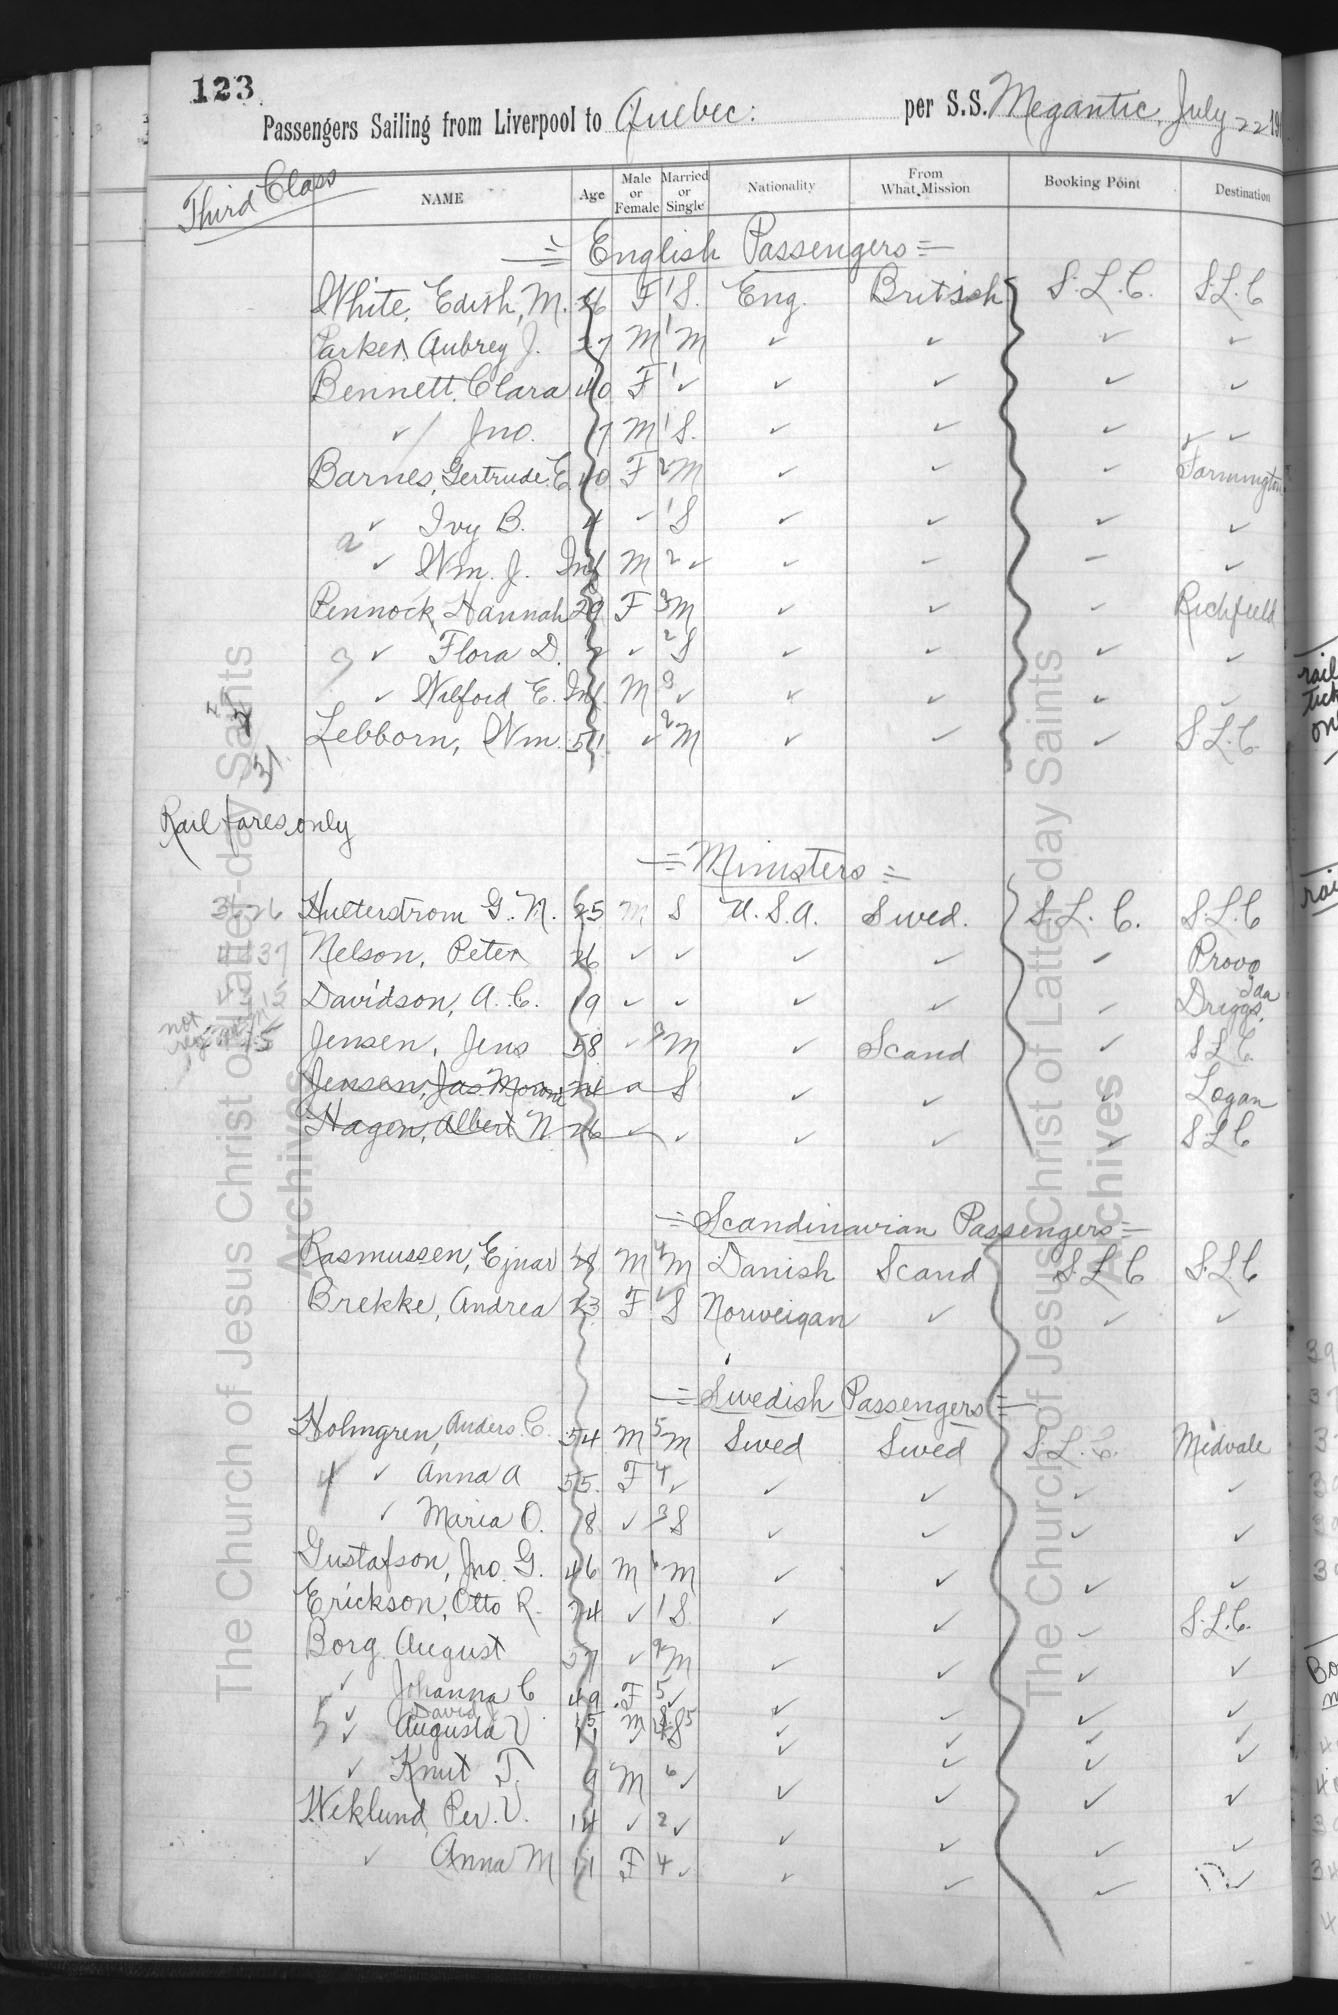 123
Passengers Sailing from Liverpool to Quebec: per S.S. Megantic, July 22 19
Third Class
NAME Age Male or Female Married or Single Nationality From What Mission Booking Point Destination
= English Passengers =
White, Edith, M. 26 F 1 S. Eng. British S.L.C. S.L.C
Parker, Aubrey J. 27 M 1 M ✓ ✓ ✓ ✓
Bennett, Clara 40 F 1 ✓ ✓ ✓ ✓ ✓
✓ Jno. 7 M 1 S. ✓ ✓ ✓ ✓ ✓
Barnes, Gertrude E. 40 F 2 M ✓ ✓ ✓ Farmington
✓ Ivy B. 4 ✓ 1 S ✓ ✓ ✓ ✓
2 ✓ Wm. J. Inf M 2 ✓ ✓ ✓ ✓ ✓
Pennock, Hannah 29 F 3 M ✓ ✓ ✓ Richfield
3 ✓ Flora D. 2 ✓ 2 S ✓ ✓ ✓ ✓
✓ Wilford E. Inf. M 3 ✓ ✓ ✓ ✓ ✓
Lebborn, Wm. 51 ✓ 2 M ✓ ✓ ✓ S.L.C.
Rail fares only
= Ministers =
Hulterstrom G. N. 25 M S U.S.A. Swed. S.L.C. S.L.C
37 Nelson, Peter 26 ✓ ✓ ✓ ✓ ✓ Provo
Davidson, A. C. 19 ✓ ✓ ✓ ✓ ✓ Driggs, Ida
not Jensen, Jens 58 ✓ M ✓ Scand ✓ S.L.C.
Jensen, Jas. Moroni 24 S ✓ ✓ ✓ Logan
Hagen, Albert N. 26 ✓ ✓ ✓ ✓ ✓ S.L.C
= Scandinavian Passengers =
Rasmussen, Ejnar 28 M M Danish Scand S.L.C S.L.C
Brekke, Andrea 23 F S Norweigan ✓ ✓ ✓
= Swedish Passengers =
Holmgren, Anders C. 54 M 5 M Swed Swed S.L.C. Midvale
4 ✓ Anna A 55. F 4 ✓ ✓ ✓ ✓ ✓
✓ Maria O. 18 ✓ 3 S ✓ ✓ ✓ ✓
Gustafson, Jno. G. 46 M M ✓ ✓ ✓ ✓
Erickson, Otto R. 24 ✓ 1 S. ✓ ✓ ✓ S.L.C.
Borg August 57 ✓ M ✓ ✓ ✓ ✓
✓ Johanna C 49 F 5 ✓ ✓ ✓ ✓ ✓
✓ David 15 M 5 ✓ ✓ ✓ ✓
5 ✓ Augusta V ✓ S ✓ ✓ ✓ ✓
✓ Knut T. 9 M 6 ✓ ✓ ✓ ✓ ✓
Wiklund, Per. V. 14 ✓ 2 ✓ ✓ ✓ ✓ ✓
✓ Anna M 11 F 4 ✓ ✓ ✓ ✓ ✓
The Church of Jesus Christ of Latter-day Saints
Archives
The Church of Jesus Christ of Latter-day Saints
Archives